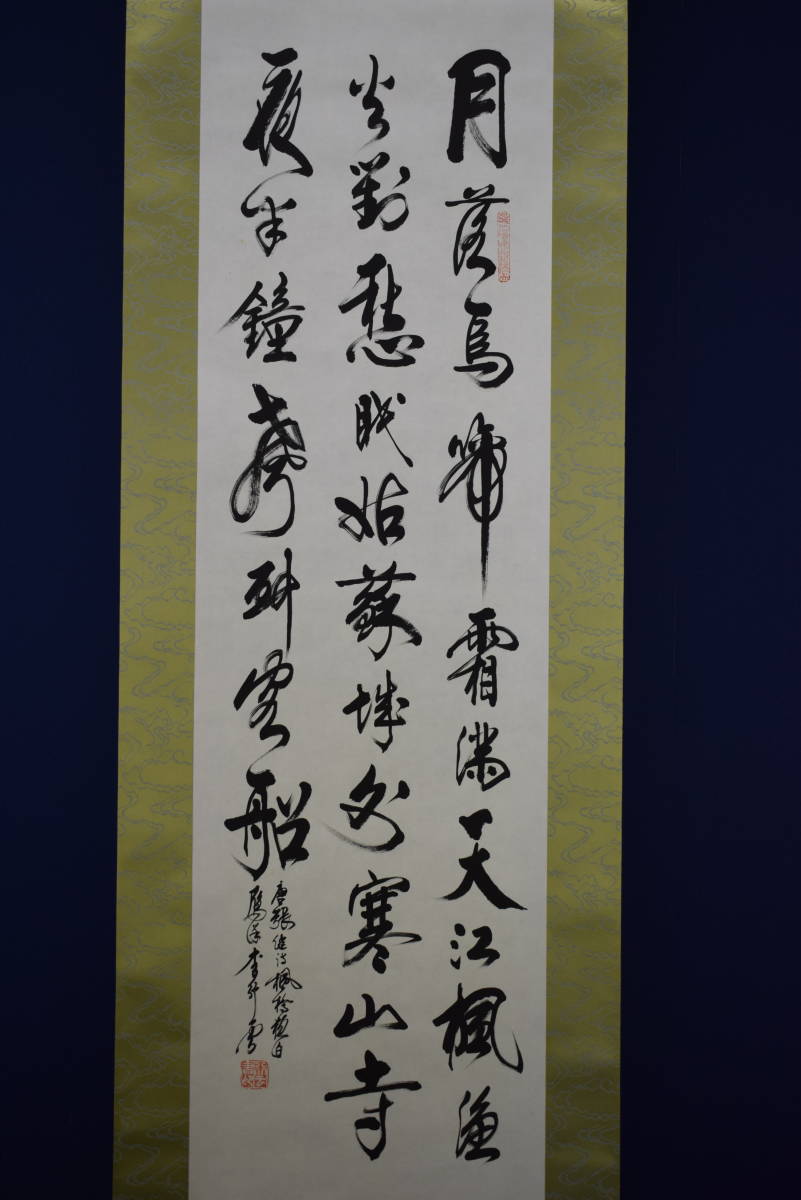 月落烏啼霜滿天江楓漁
火對愁眠姑蘇城外寒山寺
夜半鐘聲到客船
唐張継詩楓橋夜泊